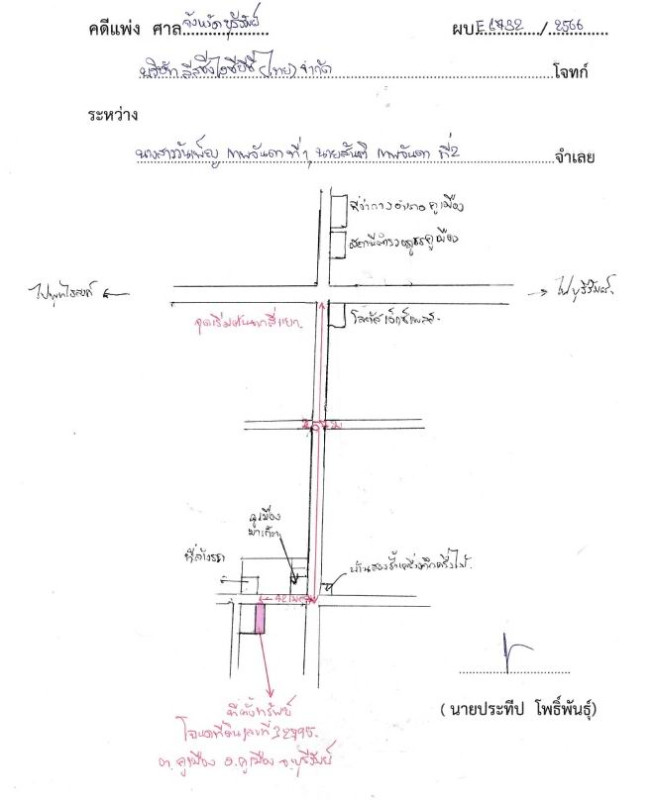 คดีแพ่ง ศาล จังหวัดบุรีรัมย์ ผบ E 6732 / 2566
บริษัท ลีสซิ่งไอซีบีซี (ไทย) จำกัด โจทก์
ระหว่าง
นางสาววันเพ็ญ เทพจันดา ที่ 1, นายสันติ เทพจันดา ที่ 2 จำเลย
ที่ว่าการอำเภอ คูเมือง
สถานีตำรวจภูธรคูเมือง
ไปพุทไธสงค์
ไปบุรีรัมย์
จุดเริ่มต้นจากสี่แยก
โลตัส เอ็กซ์เพรส
คูเมือง
ที่ตั้งทรัพย์
โฉนดที่ดินเลขที่ 32795
ต. คูเมือง อ. คูเมือง จ. บุรีรัมย์
( นายประทีป โพธิ์พันธุ์)